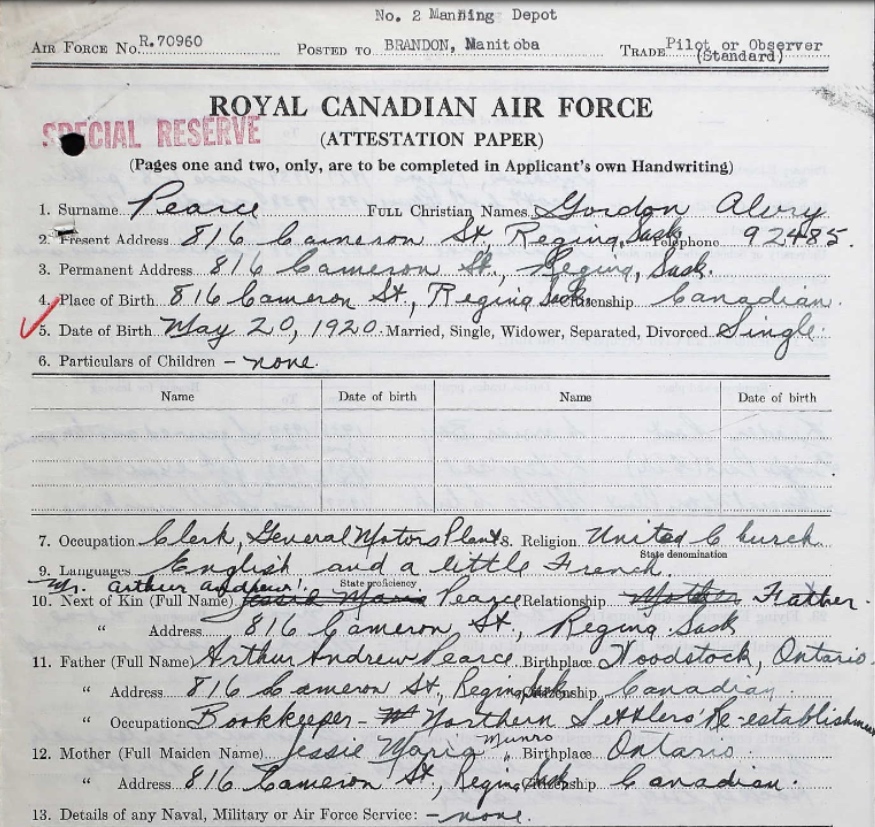 No. 2 Manning Depot
AIR FORCE No. R.70960 POSTED TO BRANDON, Manitoba TRADE Pilot or Observer
(Standard)
ROYAL CANADIAN AIR FORCE
SPECIAL RESERVE
(ATTESTATION PAPER)
(Pages one and two, only, are to be completed in Applicant's own Handwriting)
1. Surname Pearce FULL Christian Names Gordon Alvry
2. Present Address 816 Cameron St, Regina, Sask Telephone 92485.
3. Permanent Address 816 Cameron St., Regina, Sask.
4. Place of Birth 816 Cameron St, Regina Sask Citizenship Canadian.
5. Date of Birth May 20, 1920. Married, Single, Widower, Separated, Divorced Single.
6. Particulars of Children - none.
Name Date of birth Name Date of birth
7. Occupation Clerk, General Motors Plant 8. Religion United Church
State denomination
9. Languages English and a little French.
State proficiency
Mr. Arthur Andrew
10. Next of Kin (Full Name) Jessie Maria Pearce Relationship Mother Father.
" Address 816 Cameron St, Regina Sask
11. Father (Full Name) Arthur Andrew Pearce Birthplace Woodstock, Ontario.
" Address 816 Cameron St, Regina, Sask Citizenship Canadian.
" Occupation Bookkeeper - Northern Settlers' Re-establishment
12. Mother (Full Maiden Name) Jessie Maria Munro Birthplace Ontario.
" Address 816 Cameron St, Regina, Sask Citizenship Canadian.
13. Details of any Naval, Military or Air Force Service: - none.